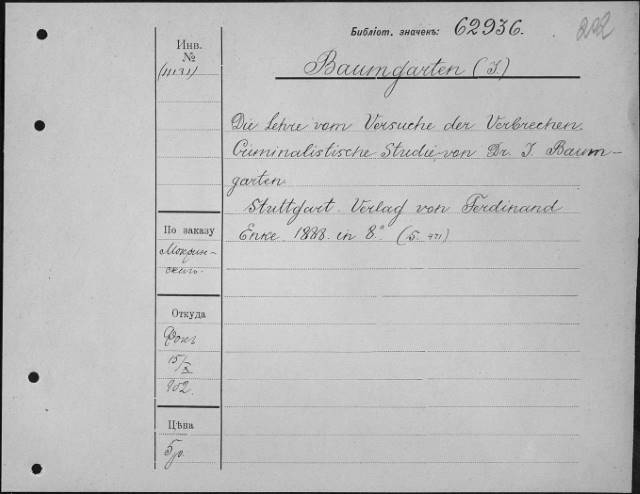 Библіот. значекъ: 62936.
222
Инв.
№
Baumgarten (I.)
Die Lehre vom Versuche der Verbrechen.
Criminalistische Studie von Dr. I. Baum-
garten
Stuttgart. Verlag von Ferdinand
Enke. 1888. in 8.° (S. 471)
По заказу
Мокрин-
скаго.
Откуда
15/X
902.
Цѣна
5 р.